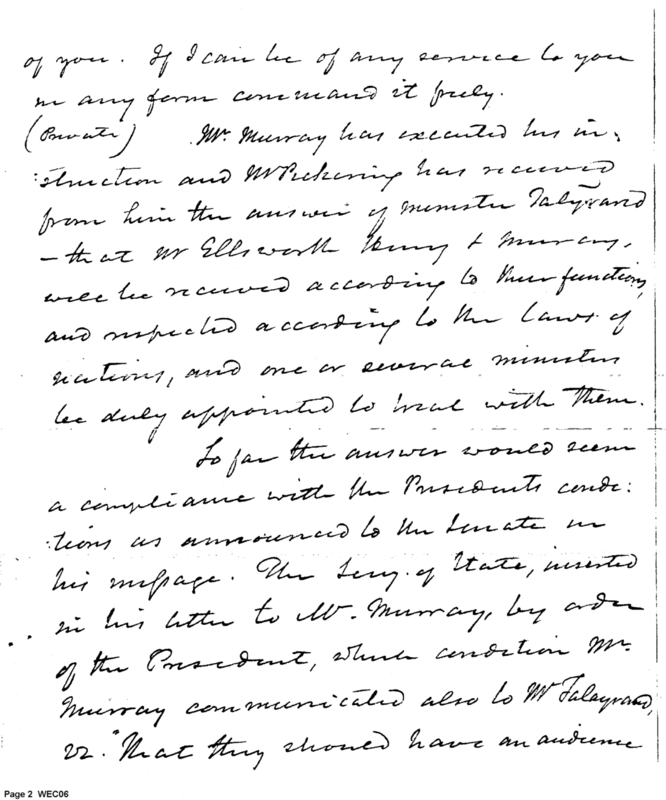 of you. If I can be of any service to you
in any form command it freely.
(Private) Mr. Murray has executed his in:
:struction and Mr Pickering has received
from him the answer of minister Talyrand
– that Mr Ellsworth Henry & Murray,
will be received according to their functions,
and respected according to the Laws of
nations, and one or several ministers
be duly appointed to treat with them.
So far the answer would seem
a compliance with the Presidents condi:
:tions as announced to the Senate in
his message. The Secy. of State, inserted
in his letter to Mr. Murray, by order
of the President, which condition Mr.
Murray communicated also to Mr Talayrand,
viz. "That they should have an audience
Page 2 WEC06